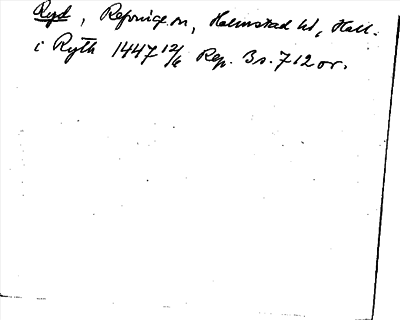 Ryd, Refvinge sn, Halmstad hd, Hall.
i Ryth 1447 12/6 Rep. Bs. 712 or.